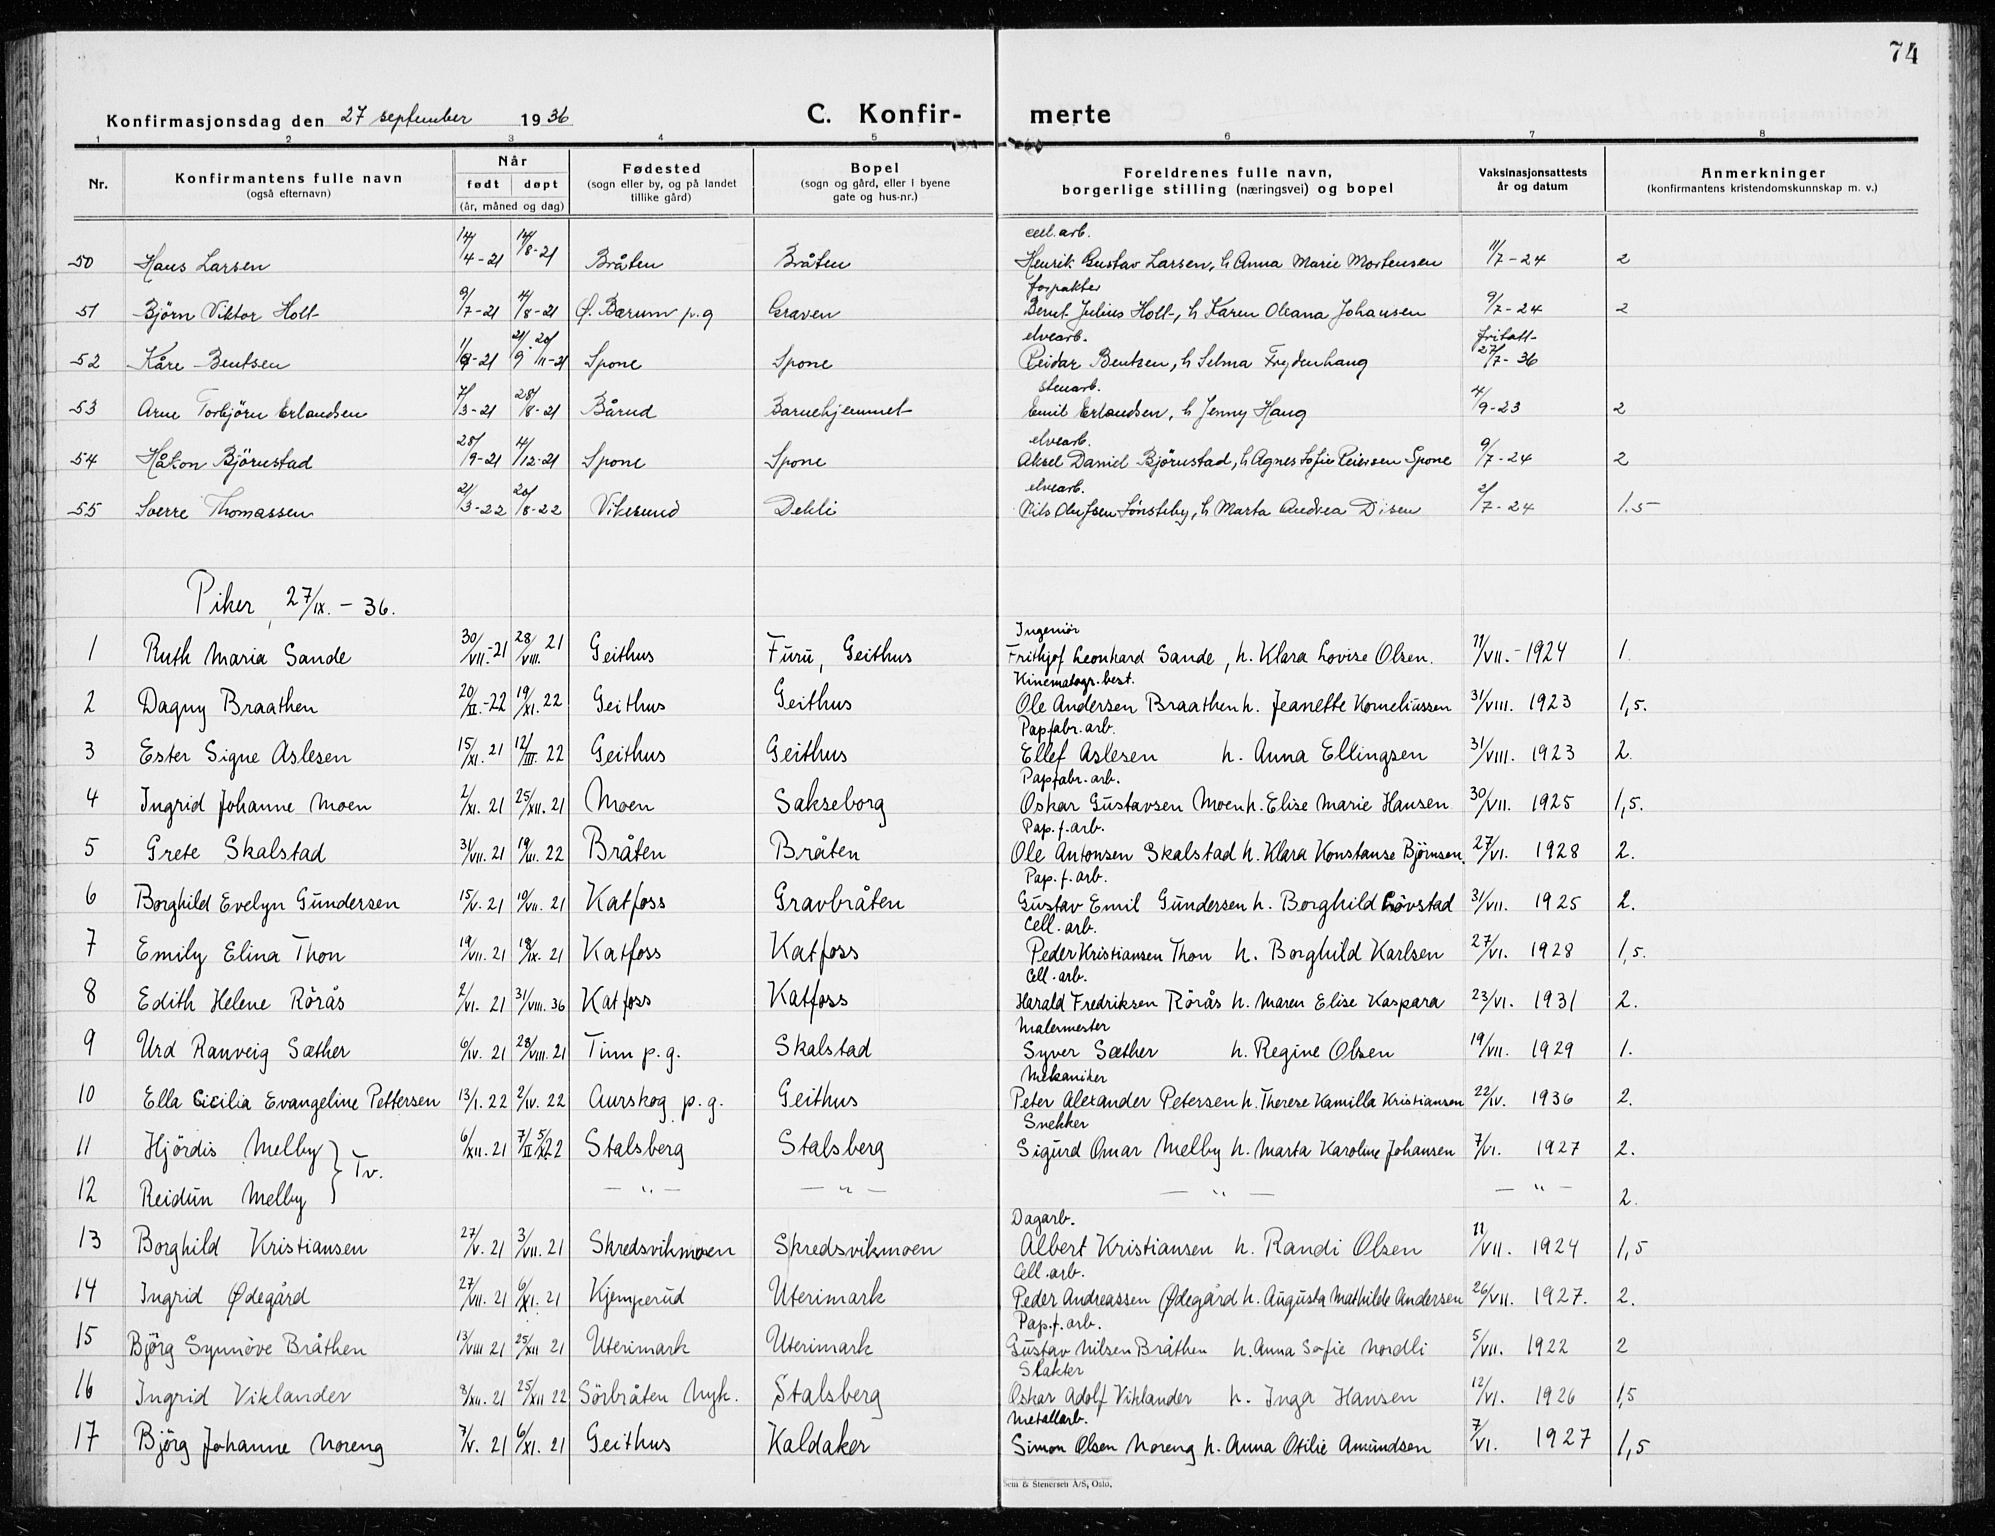 74
Konfirmasjonsdag den 27 september 1936 C. Konfir- merte
1 2 3 4 5 6 7 8
Nr. Konfirmantens fulle navn (også efternavn) Når født døpt (år, måned og dag) Fødested (sogn eller by, og på landet tillike gård) Bopel (sogn og gård, eller i byene gate og hus-nr.) Foreldrenes fulle navn, borgerlige stilling (næringsvei) og bopel Vaksinasjonsattests år og datum Anmerkninger (konfirmantens kristendomskunnskap m. v.)
cell.arb.
50 Hans Larsen 14/4-21 14/8-21 Bråten Bråten Henrik Gustav Larsen, h Anna Marie Mortensen 11/7-24 2
forpakter
51 Björn Viktor Holt 9/7-21 4/8-21 Ø. Bærum p.g Graven Bernt Julius Holt, h Karen Oleana Johansen 9/7-24 2
elvearb. fritatt
52 Kåre Bentsen Spone Spone Reidar Bentsen, h Selma Frydenhaug 27/7-36
stenarb.
53 Arne Torbjörn Erlandsen 7/3-21 28/8-21 Bårud Barnehjemmet Emil Erlandsen, h Jenny Haug 4/9-23 2
elvearb.
54 Håkon Björnstad 28/9-21 4/12-21 Spone Spone Aksel Daniel Björnstad, h Agnes Sofie Peiersen Spone 9/7-24 2
elvearb.
55 Sverre Thomassen 21/3-22 20/8-22 Vikesund Dehli Nils Olufsen Lønsteby, h Marta Andrea Disen 2/7-24 1.5
Piker, 27/IX. - 36.
Ingeniör
1 Ruth Maria Sande 30/VII.-21 28/VIII. 21 Geithus Furu, Geithus Frithjof Leonhard Sande, h. Klara Lovise Olsen. 11/VII.-1924 1.
Kinematogr. best.
2 Dagny Braathen 20/II.-22 19/XI. 22 Geithus Geithus Ole Andersen Braathen h. Jeanette Korneliussen 31/VIII. 1923 1,5.
Papfabr. arb.
3 Ester Signe Aslesen 15/XI. 21 12/III. 22 Geithus Geithus Ellef Aslesen h. Anna Ellingsen 31/VIII. 1923 2.
Papfabr. arb.
4 Ingrid Johanne Moen 2/XI. 21 25/XII. 21 Moen Sakseborg Oskar Gustavsen Moen h. Elise Marie Hansen 30/VII. 1925 1,5.
Pap. f. arb.
5 Grete Skalstad 31/VII. 21 19/III. 22 Bråten Bråten Ole Antonsen Skalstad h. Klara Konstanse Björnsen. 27/VI. 1928 2.
Pap. f. arb.
6 Borghild Evelyn Gundersen 15/V. 21 10/VII. 21 Katfoss Gravbråten Gustav Emil Gundersen h. Borghild Lövstad 31/VII. 1925 2.
Cell. arb.
7 Emily Elina Thon 19/VII. 21 18/IX. 21 Katfoss Katfoss Peder Kristiansen Thon h. Borghild Karlsen 27/VI. 1928 1,5.
Cell. arb.
8 Edith Helene Rörås 2/VI. 21 31/VIII. 36 Katfoss Katfoss Harald Fredriksen Rörås h. Maren Elise Kaspara 23/VI. 1931 2.
Malermester
9 Urd Ranveig Sæther 6/IV. 21 28/VIII. 21 Tinn p.g. Skalstad Syver Sæther h. Regine Olsen 19/VII. 1929 1.
Mekaniker
10 Ella Cicilia Evangeline Pettersen 13/I. 22 2/IV. 22 Aurskog p.g. Geithus Peter Alexander Petersen h. Therese Kamilla Kristiansen 22/IV. 1936 2.
Snekker
11 Hjördis Melby } Tv. 6/XII. 21 7/II 5/XI 22 Stalsberg Stalsberg Sigurd Omar Melby h. Marta Karoline Johansen 7/VI. 1927 2.
12 Reidun Melby — " — — " — — " — — " — 2.
Dagarb.
13 Borghild Kristiansen 27/V. 21 3/VII. 21 Skredsvikmoen Skredsvikmoen Albert Kristiansen h. Randi Olsen 11/VII. 1924 1,5
Cell. arb.
14 Ingrid Ødegård 27/VII. 21 6/XI. 21 Kjemperud Uterimark Peder Andreassen Ødegård h. Augusta Mathilde Andersen 26/VII. 1927. 2.
Pap. f. arb.
15 Björg Synnöve Bråthen 13/VIII 21 25/XII 21 Uterimark Uterimark Gustav Nilsen Bråthen h. Anna Sofie Nordli 5/VII. 1922 2
Slakter
16 Ingrid Viklander 8/XII. 21 25/XII 22 Sörbråten Nyk. Stalsberg Oskar Adolf Viklander h. Inga Hansen 12/VI. 1926 1,5
Metallarb.
17 Björg Johanne Noreng 7/V. 21 6/XI. 21 Geithus Kaldaker Simon Olsen Noreng h. Anna Otilie Amundsen 7/VI. 1927 1,5
Sem & Stenersen A/S, Oslo.